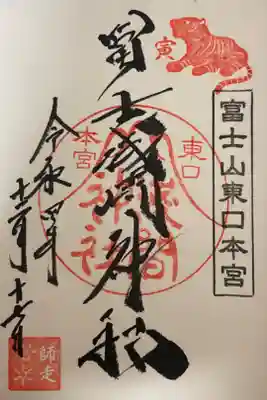 寅
富士山東口本宮
冨士浅間神社
東口
本宮
令和四年十二月十七日
師走